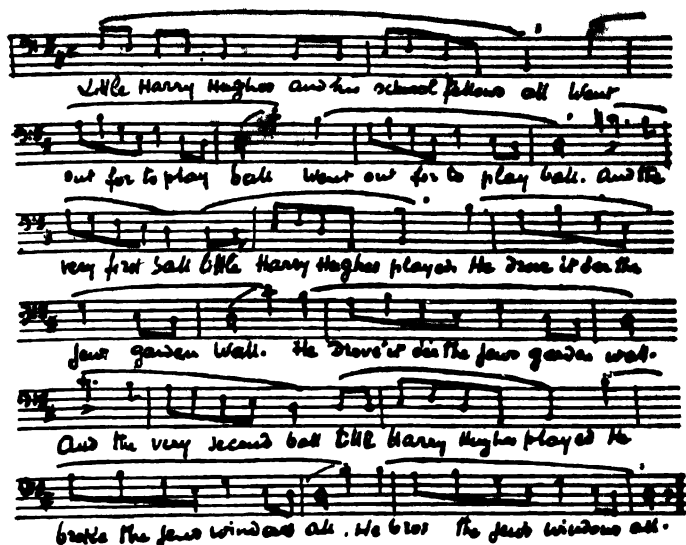 Little Harry Hughes and his school fellows all Went
out for to play ball Went out for to play ball. And the
very first ball little Harry Hughes played He drove it o'er the
Jews garden wall. He drove it o'er the Jews garden wall.
And the very second ball little Harry Hughes played He
broke the Jews windows all. He broke the Jews windows all.